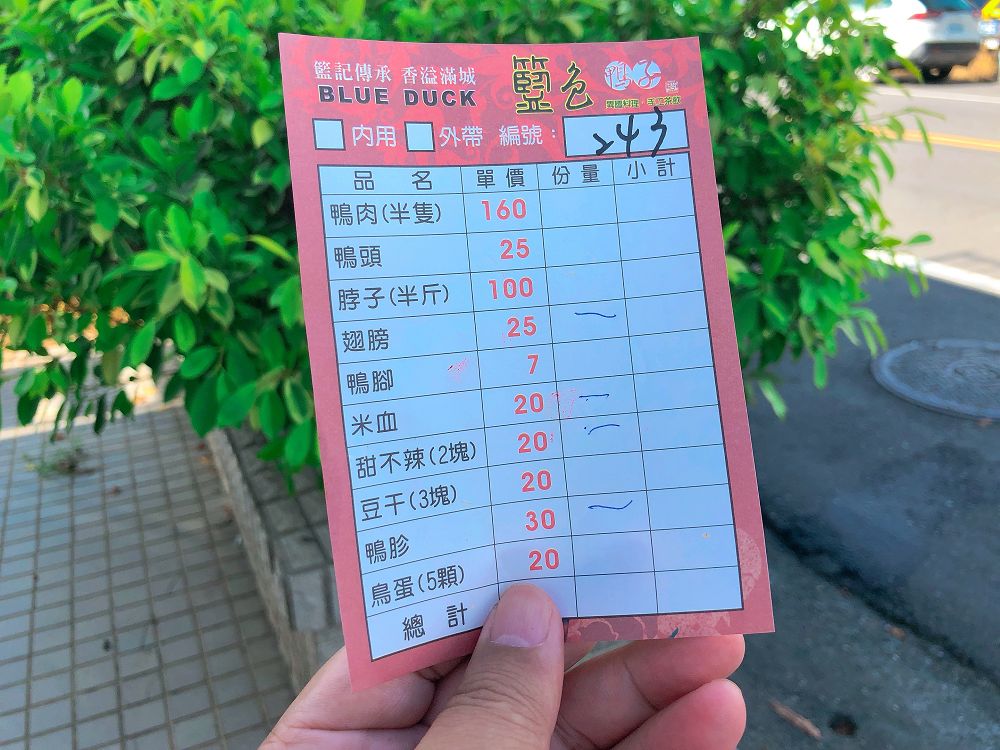 籃記傳承 香溢滿城
BLUE DUCK
籃色鴨子
內用 外帶 編號： 243
品 名 單價 份量 小計
鴨肉(半隻) 160
鴨頭 25
脖子(半斤) 100
翅膀 25 一
鴨腳 7
米血 20 一
甜不辣(2塊) 20 一
豆干(3塊) 20
鴨胗 30 一
鳥蛋(5顆) 20
總 計